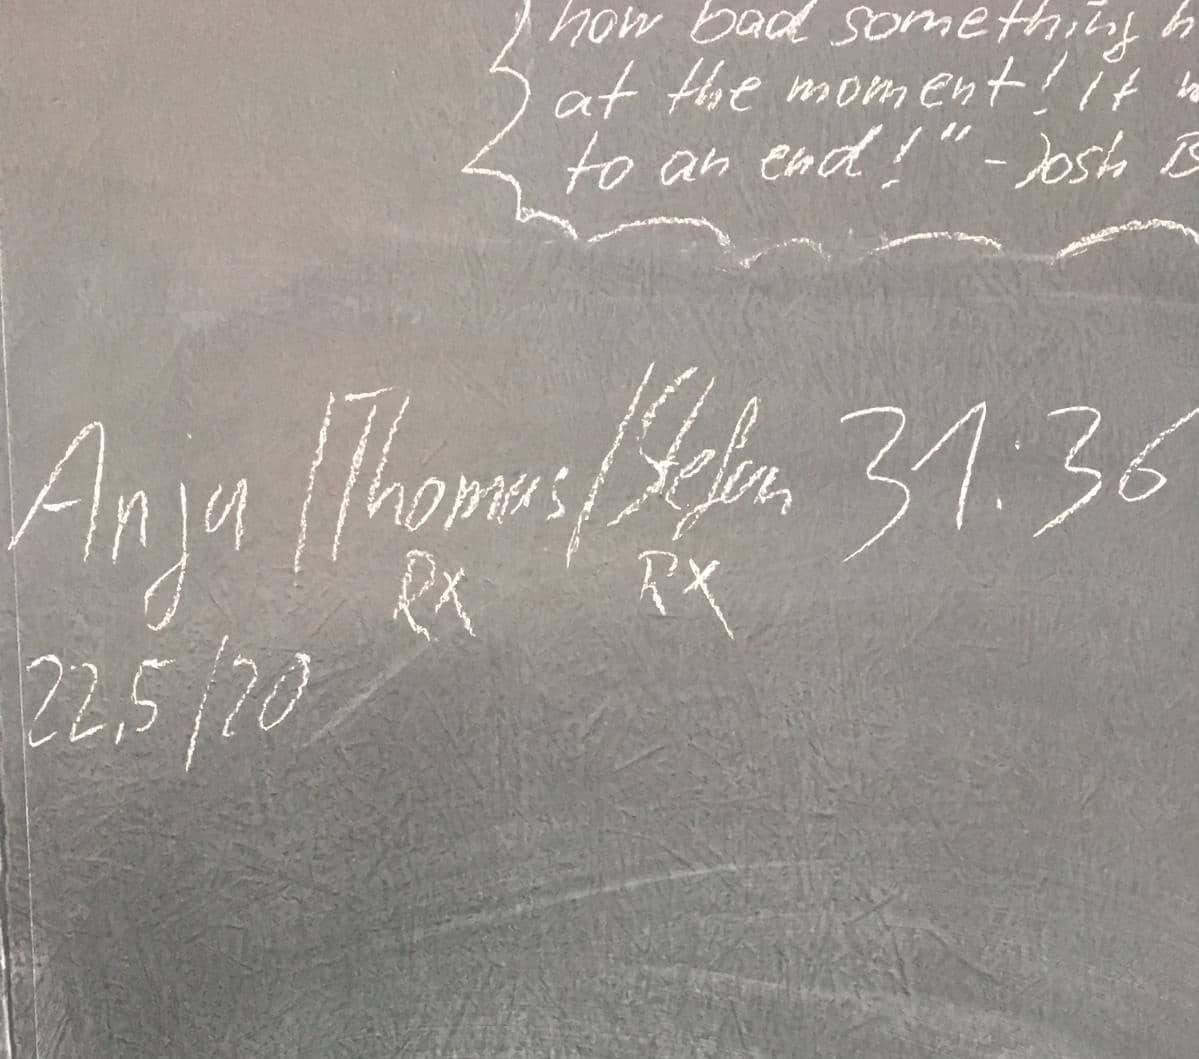 how bad something h
at the moment! It w
to an end!" - Josh B
Anja / Thomas / Stefan 31:36
Rx RX
22,5/20